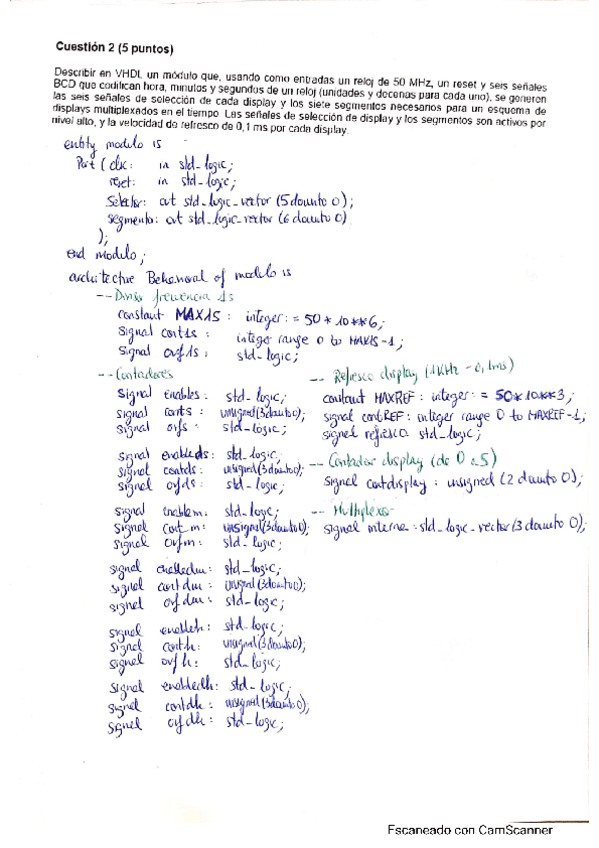 Cuestión 2 (5 puntos)
Describir en VHDL un módulo que, usando como entradas un reloj de 50 MHz, un reset y seis señales
BCD que codifican hora, minutos y segundos de un reloj (unidades y decenas para cada uno), se generen
las seis señales de selección de cada display y los siete segmentos necesarios para un esquema de
displays multiplexados en el tiempo. Las señales de selección de display y los segmentos son activos por
nivel alto, y la velocidad de refresco de 0,1 ms por cada display.
entity modulo is
Port ( clk: in std_logic;
reset: in std_logic;
Selector: out std_logic_vector (5 downto 0);
segmento: out std_logic_vector (6 downto 0)
);
end modulo;
architecture Behavioral of modulo is
-- Divisor frecuencia 1s
constant MAX1S : integer := 50 * 10**6;
Signal cont1s : integer range 0 to MAX1S-1;
Signal ovf1s : std_logic;
-- Contadores
Signal enables : std_logic;
signal conts : unsigned(3downto0);
signal ovfs : std_logic;
signal enableds: std_logic;
signal contds: unsigned(3downto0);
signal ovfds: std_logic;
signal enablem: std_logic;
Signal cont m: unsigned(3downto0);
Signal ovfm: std_logic;
signal enabledm: std_logic;
signal contdm: unsigned(3downto0);
signal ovfdm: std_logic;
signal enableh: std_logic;
signal conth: unsigned(3downto0);
signal ovfh: std_logic;
Signal enabledh: std_logic;
signal contdh: unsigned(3downto0);
signal ovfdh: std_logic;
-- Refresco display (1KHz - 0,1ms)
constant MAXREF : integer := 50*10**3;
signal contREF : integer range 0 to MAXREF-1;
signal refresco std_logic;
-- Contador display (de 0 a 5)
Signal contdisplay : unsigned (2 downto 0);
-- Multiplexor
signal interna : std_logic_vector(3 downto 0);
Escaneado con CamScanner